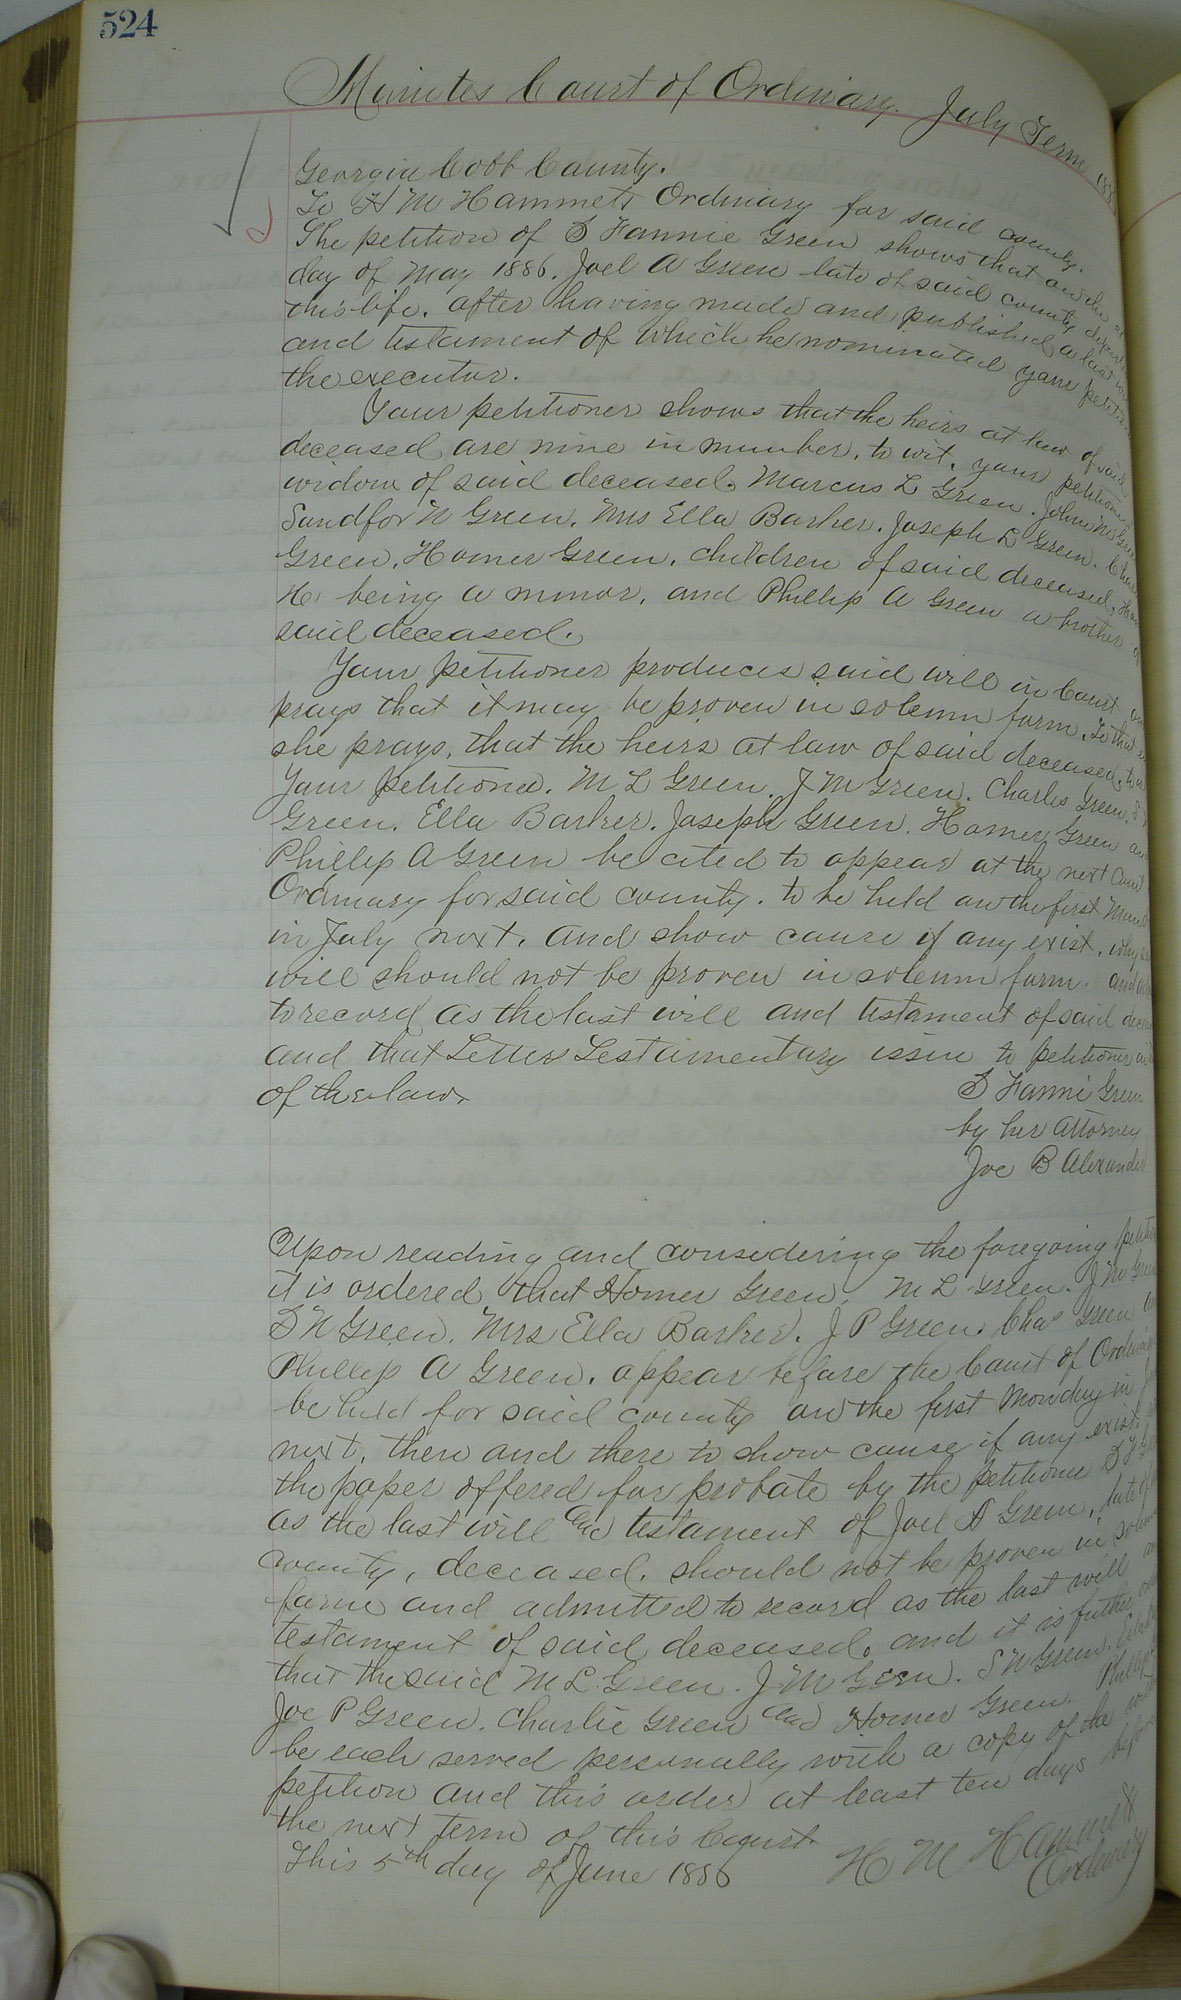 524
Minutes Court of Ordinary. July Term
Georgia Cobb County.
To H M Hammett Ordinary for said county.
The petition of S Fannie Green shows that on the
day of May 1886. Joel A Green late of said county
this life, after having made and published a last
and testament of which he nominated your
the executor.
Your petitioner shows that the heirs at law of said
deceased are nine in number, to wit, your petitioner
widow of said deceased. Marcus L Green. John M
Sandfor N Green. Mrs Ella Barker. Joseph L Green.
Green. Homer Green. children of said deceased.
H. being a minor, and Phillip A Green a brother
said deceased.
Your petitioner produces said will in Court
prays that it may be proven in solemn form. To that
she prays, that the heirs at law of said deceased,
Your petitioner. M L Green. J M Green. Charles Green.
Green. Ella Barker. Joseph Green. Homer Green
Phillip A Green be cited to appear at the next Court
Ordinary for said county. to be held on the first
in July next. and show cause if any exist. why
will should not be proven in solemn form.
to record as the last will and testament of said
and that Letters Testamentary issue to petitioner
of the law.
S Fanni Green
by her Attorney
Joe B Alexander
Upon reading and considering the foregoing
it is ordered that Homer Green, M L Green. J M
S N Green. Mrs Ella Barker. J P Green. Chas Green
Phillip A Green. appear before the Court of
be held for said county on the first Monday in
next, then and there to show cause if any exist.
the paper offered for probate by the petitioner
as the last will and testament of Joel A Green, late of
county, deceased. should not be proven in
form and admitted to record as the last will
testament of said deceased. and it is futher
that the said M L Green. J M Green. S N Green.
Joe P Green. Charlie Green and Homer Green.
be each served personally with a copy of the
petition and this order at least ten days
the next term of this Court.
This 5th day of June 1886
H M Hammett
Ordinary